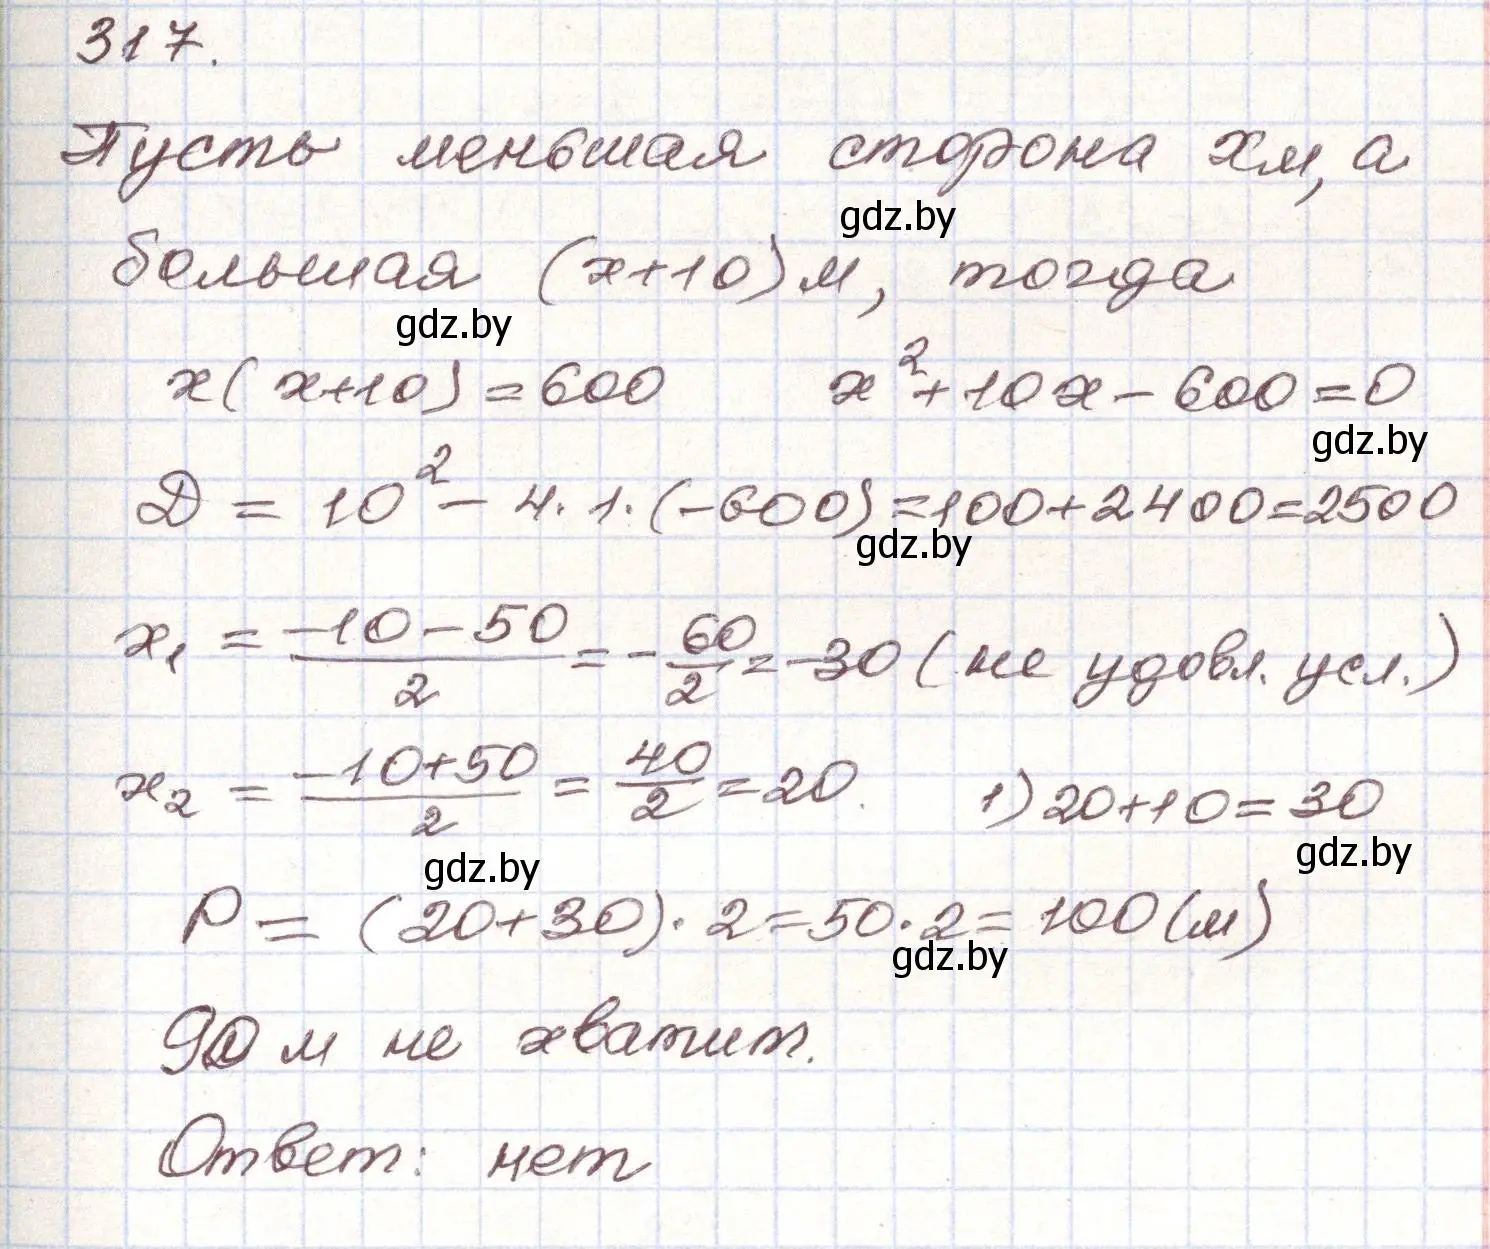 317.
Пусть меньшая сторона x м, а
gdz.by
большая (x+10) м, тогда
gdz.by
x(x+10)=600 x²+10x-600=0
gdz.by
D = 10² - 4·1·(-600)=100+2400=2500
gdz.by
x₁ = (-10-50)/2 = -60/2 = -30 (не удовл. усл.)
x₂ = (-10+50)/2 = 40/2 = 20. 1) 20+10=30
gdz.by gdz.by
P = (20+30)·2=50·2=100(м)
gdz.by
90 м не хватит.
Ответ: нет